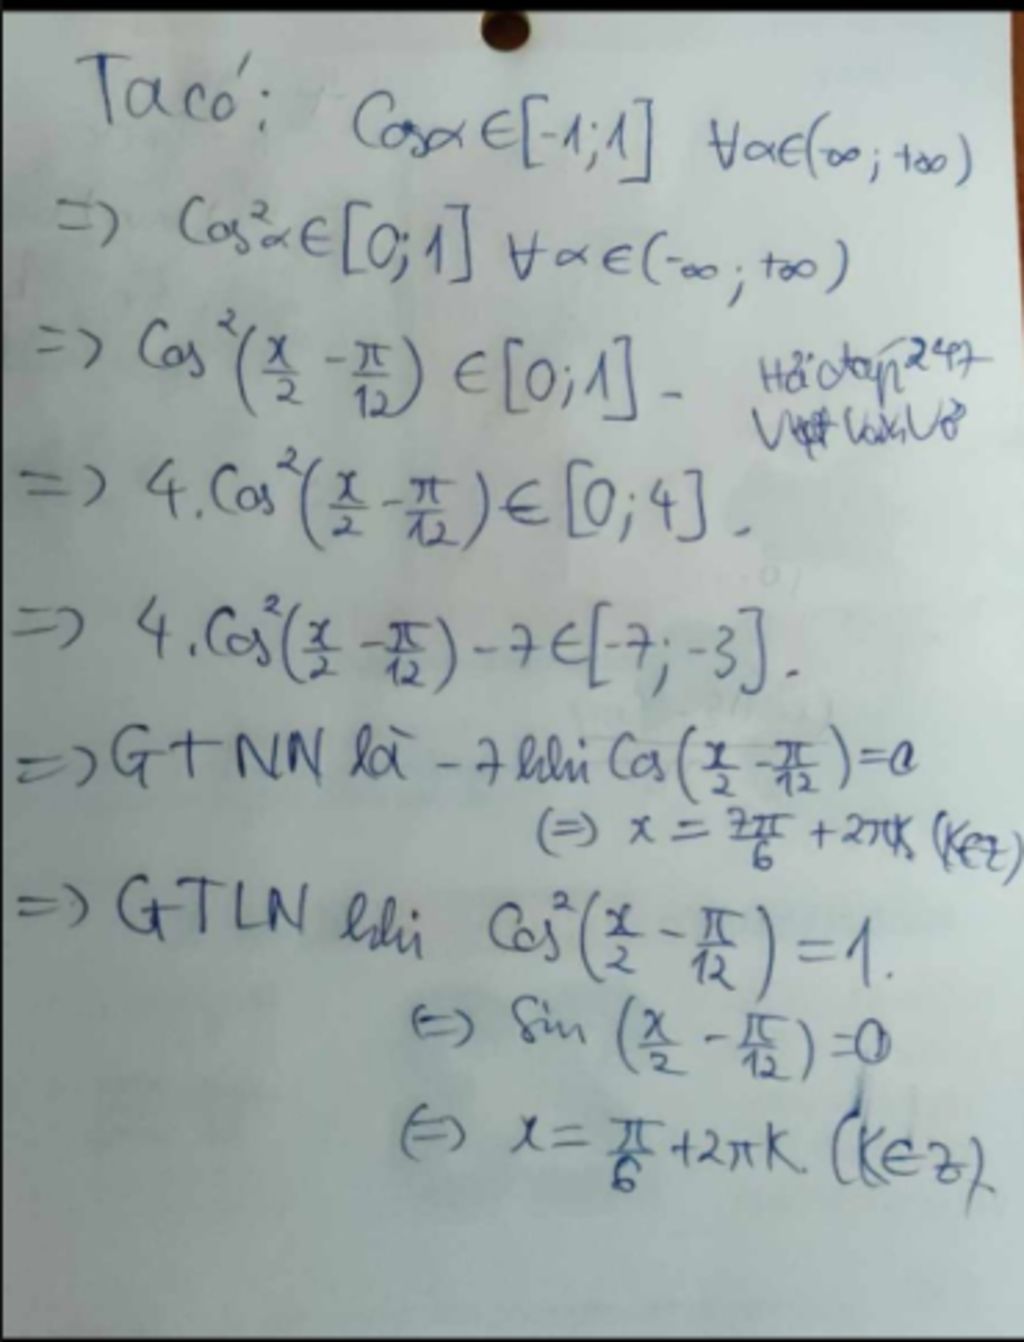 Ta có: Cosα ∈ [-1;1] ∀α∈(-∞; +∞)
=> Cos²α ∈ [0;1] ∀α∈(-∞; +∞)
=> Cos²(x/2 - π/12) ∈ [0;1].
Hỏi đáp 247
=> 4.Cos²(x/2 - π/12) ∈ [0;4].
=> 4.Cos²(x/2 - π/12) - 7 ∈ [-7; -3].
=> GTNN là -7 khi Cos(x/2 - π/12) = 0
(=) x = 7π/6 + 2πK (K∈Z)
=> GTLN khi Cos²(x/2 - π/12) = 1.
(=) Sin (x/2 - π/12) = 0
(=) x = π/6 + 2πK (K∈Z).